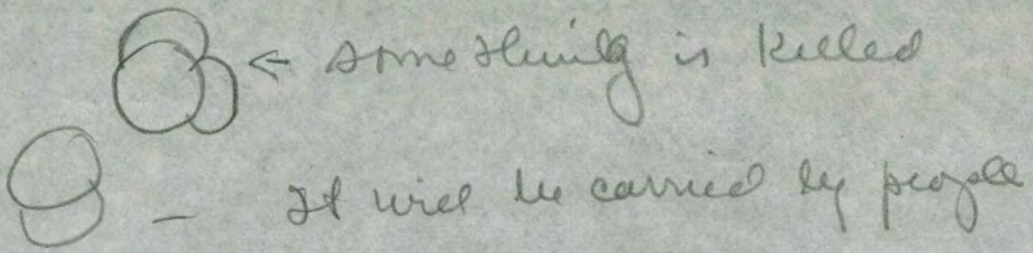 ← something is killed
– It will be carried by people